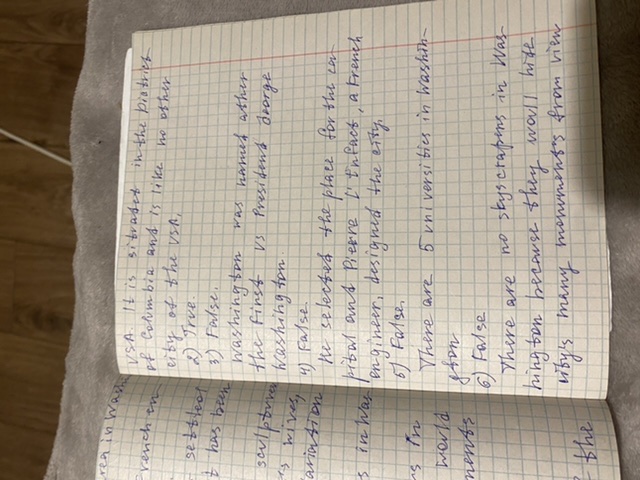 USA. It is sitrated in the District
of Columbia and is like no other
city of the USA.
2) True.
3) False.
Washington was named after
the First US President George
Washington
4) False.
He selected the place for the ca-
pital and Pierre L'Enfact, a French
engineer, designed the city.
5) False.
There are 5 universities in Washin-
gton
6) False
There are no skyscrapers in Was-
hington because they would hide
city's many monuments from view
area in Wash
French en
settled
t has been
sculpture
wives,
variation
s in Was
s in
would
ments
the